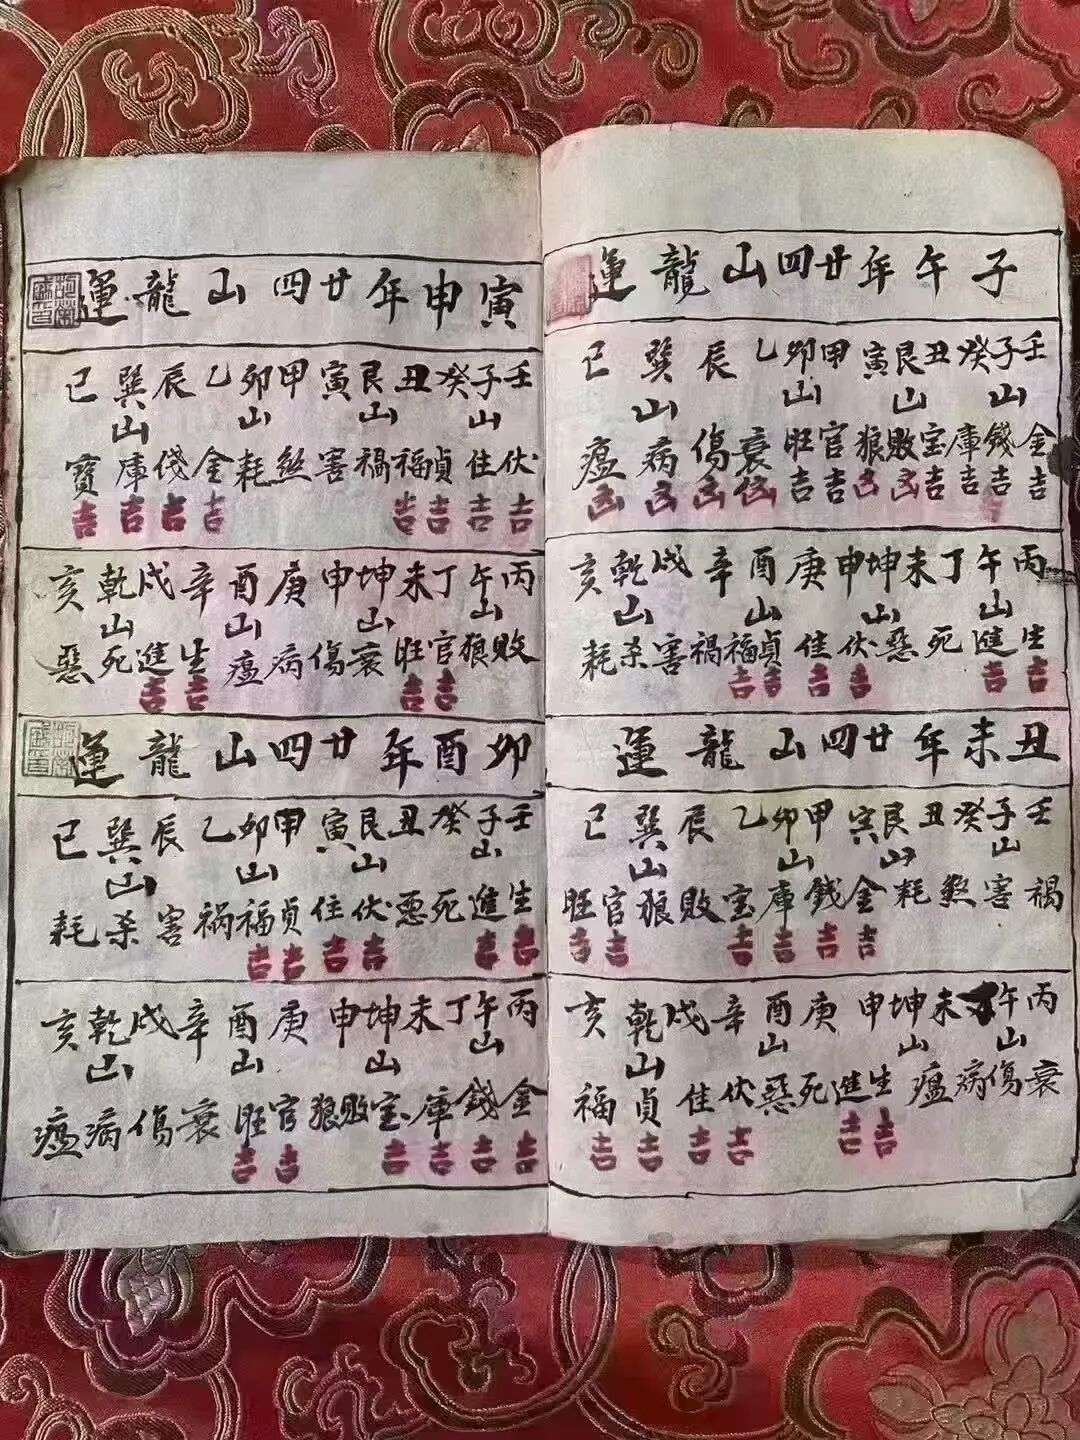 子午年廿四山龍運
壬子癸丑艮寅甲卯乙辰巽巳
山山山山
金錢庫宝敗狼官旺衰傷病瘟
吉吉吉吉凶凶吉吉凶凶凶凶
丙午丁未坤申庚酉辛戌乾亥
山山山山
生進死惡伏佳貞福禍害杀耗
吉吉吉吉吉吉
丑未年廿四山龍運
壬子癸丑艮寅甲卯乙辰巽巳
山山山山
禍害煞耗金錢庫宝敗狼官旺
吉吉吉吉吉吉
丙午丁未坤申庚酉辛戌乾亥
山山山山
衰傷病瘟生進死惡伏佳貞福
吉吉吉吉吉吉
寅申年廿四山龍運
壬子癸丑艮寅甲卯乙辰巽巳
山山山山
伏佳貞福禍害煞耗金伐庫寶
吉吉吉吉吉吉吉吉
丙午丁未坤申庚酉辛戌乾亥
山山山山
敗狼官旺衰傷病瘟生進死惡
吉吉吉吉
卯酉年廿四山龍運
壬子癸丑艮寅甲卯乙辰巽巳
山山山山
生進死惡伏佳貞福祸害杀耗
吉吉吉吉吉吉
丙午丁未坤申庚酉辛戌乾亥
山山山山
金錢庫宝敗狼官旺衰傷病瘟
吉吉吉吉吉吉